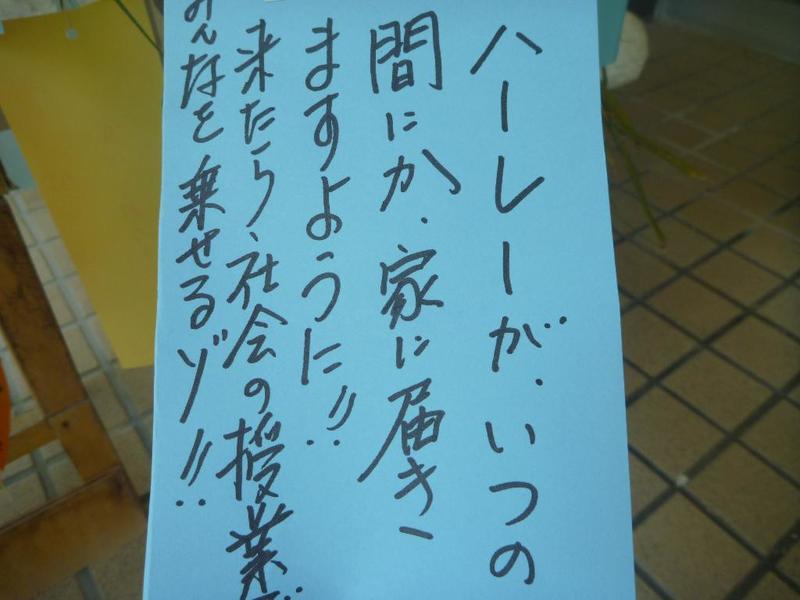 ハーレーが、いつの
間にか、家に届き
ますように!!
来たら、社会の授業で
みんなを乗せるゾ!!